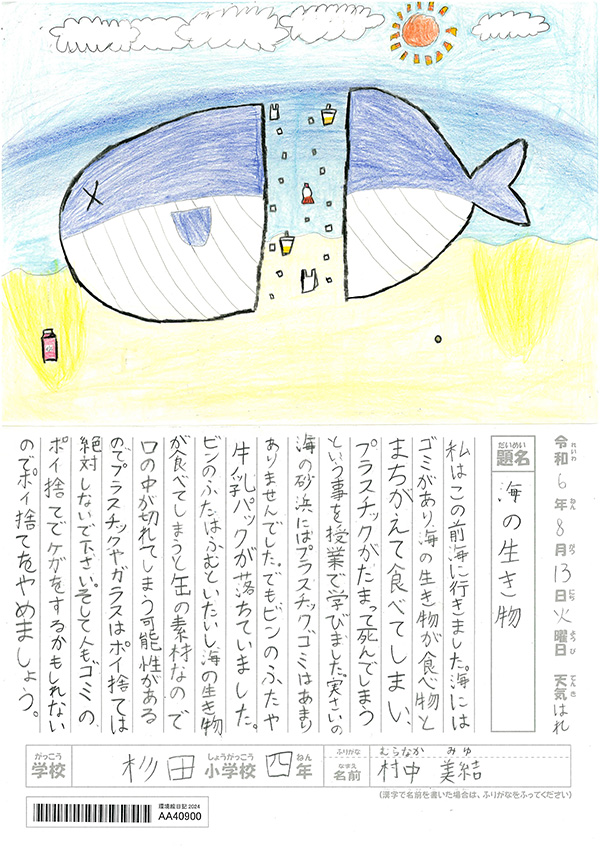 令和6年8月13日火曜日 天気はれ
れいわ ねん がつ にち ようび てんき
だいめい
題名 海の生き物
私はこの前海に行きました。海には
ゴミがあり海の生き物が食べ物と
まちがえて食べてしまい、
プラスチックがたまって死んでしまう
という事を授業で学びました。実さいの
海の砂浜にはプラスチックゴミはあまり
ありませんでした。でもビンのふたや
牛乳パックが落ちていました。
ビンのふたはふむといたいし海の生き物
が食べてしまうと缶の素材なので
口の中が切れてしまう可能性がある
のでプラスチックやガラスはポイ捨ては
絶対しないで下さい。そして人もゴミの
ポイ捨てでケガをするかもしれない
のでポイ捨てをやめましょう。
がっこう しょうがっこう ねん
学校 杉田小学校四年
ふりがな むらなか みゆ
なまえ
名前 村中 美結
(漢字で名前を書いた場合は、ふりがなをふってください)
環境絵日記2024
AA40900